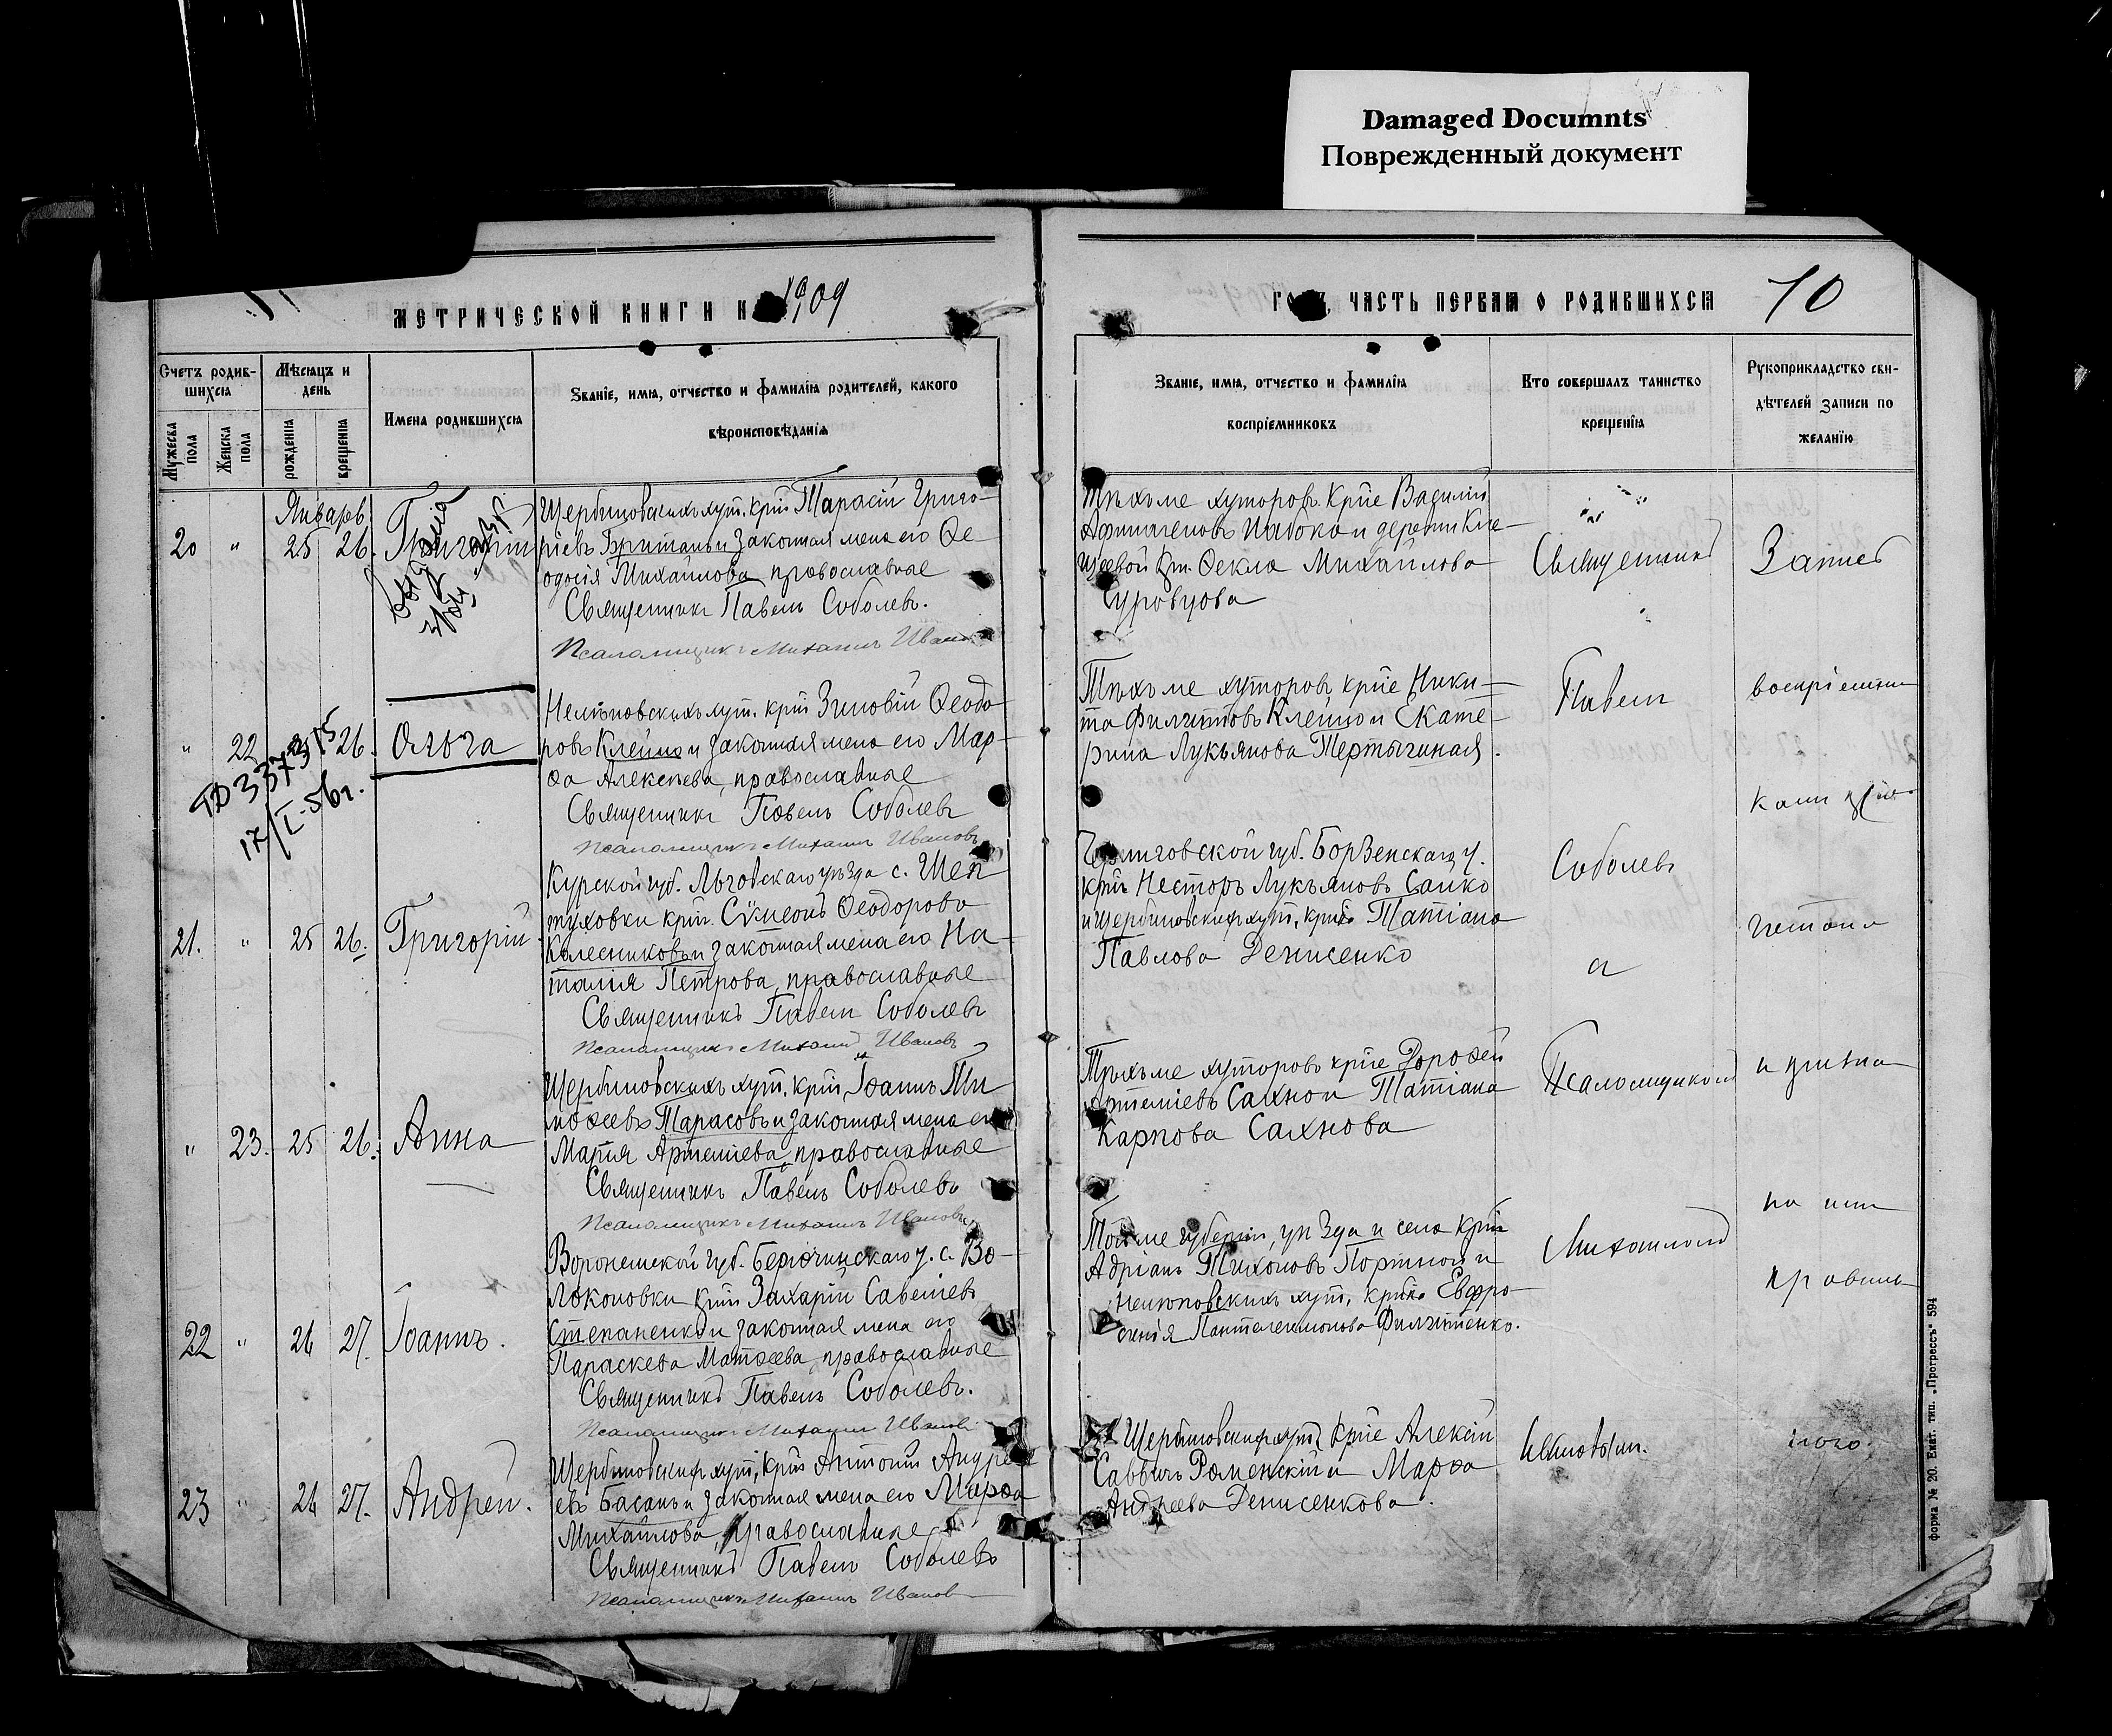 Damaged Documnts
Поврежденный документ
МЕТРИЧЕСКОЙ КНИГИ Н 1909
ГО , ЧАСТЬ ПЕРВАЯ О РОДИВШИХСЯ
10
Счетъ родив-
шихся
Мужеска пола
Женска пола
Мѣсяцъ и
день
рожденїя
крещенїя
Имена родившихся
Званїе, имя, отчество и фамилїя родителей, какого
вѣроисповѣданїя
Званїе, имя, отчество и фамилїя
воспрїемниковъ
Кто совершалъ таинство
крещенїя
Рукоприкладство сви-
дѣтелей записи по
желанїю
Январь
20 " 25 26. Григорій
Щербиновскихъ хут. крін Тарасій Григо-
ріевъ и законная жена его Ѳе-
одосія Михайлова, православные
Священникъ Павелъ Соболевъ.
Псаломщикъ Михаилъ Иванов
Тѣхъ же хуторовъ кр-не Василій
и деревни Кле-
Ѳекла Михайлова
" 22 26. Ольга
ТЮ 337315
17/I-56г.
хут. крін Зиновій Ѳеодо
ровъ Клейно и законная жена его Мар-
ѳа Алексѣева, православные
Священникъ Павелъ Соболевъ
Псаломщикъ Михаилъ Ивановъ
Тѣхъ же хуторовъ кр-не Ники-
та Филиповъ Клейно и Екате-
рина Лукьянова Тертычная.
21. " 25 26. Григорій
Курской губ. Льговскаго уѣзда с. Шеп
туховки крін. Сѵмеонъ Ѳеодоровъ
Колесниковъ и законная жена его На-
талія Петрова, православные
Священникъ Павелъ Соболевъ
Псаломщикъ Михаилъ Ивановъ
Черниговской губ. Борзенскаго у.
крін Несторъ Лукьяновъ Сайко
и Щербиновскихъ хут. Татіана
Павлова Денисенко
" 23. 25 26. Анна
Щербиновскихъ хут. крін Іоаннъ Ти
моѳеевъ Тарасовъ и законная жена его
Марія Артеміева, православные
Священникъ Павелъ Соболевъ
Псаломщикъ Михаилъ Ивановъ
Тѣхъ же хуторовъ кр-не Дороѳей
Артеміевъ Сахно и Татіана
Карпова Сахнова
22 " 26 27. Іоаннъ.
Воронежской губ. Бирючинскаго у. с. Во-
локоновки крін Захарій Савеліевъ
Степаненко и законная жена его
Параскева Матѳеева, православные
Священникъ Павелъ Соболевъ.
Псаломщикъ Михаилъ Иванов
Той же губерніи, уѣзда и села крін
Адріанъ Тихоновъ Портной и
хут. Евфро-
синія Пантелеимонова Филипенко.
23 " 26 27. Андрей.
Щербиновскихъ хут. крін Антоній Андре
евъ Басанъ и законная жена его Марѳа
Михайлова, православные
Священникъ Павелъ Соболевъ
Псаломщикъ Михаилъ Иванов
Щербиновскихъ хут. кр-не Алексій
Саввинъ Роменскій и Марѳа
Андреева Денисенкова.
Священникъ
Павелъ
Соболевъ
с
Псаломщикомъ
Михаиломъ
Ивановым.
Запись
форма № 20. Екат. тип. „Прогрессъ“ 594